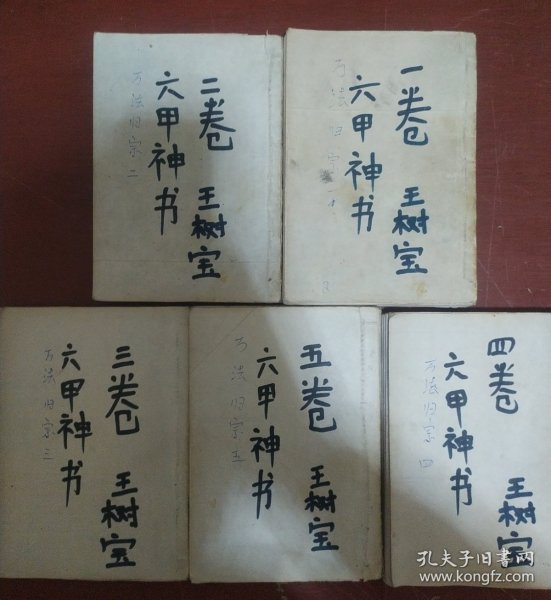 一卷 王树宝
六甲神书
万法归宗一
8
二卷 王树宝
六甲神书
万法归宗二
三卷 王树宝
六甲神书
万法归宗三
五卷 王树宝
六甲神书
万法归宗五
四卷 王树宝
六甲神书
万法归宗四
孔夫子旧书网
www.kongfz.com